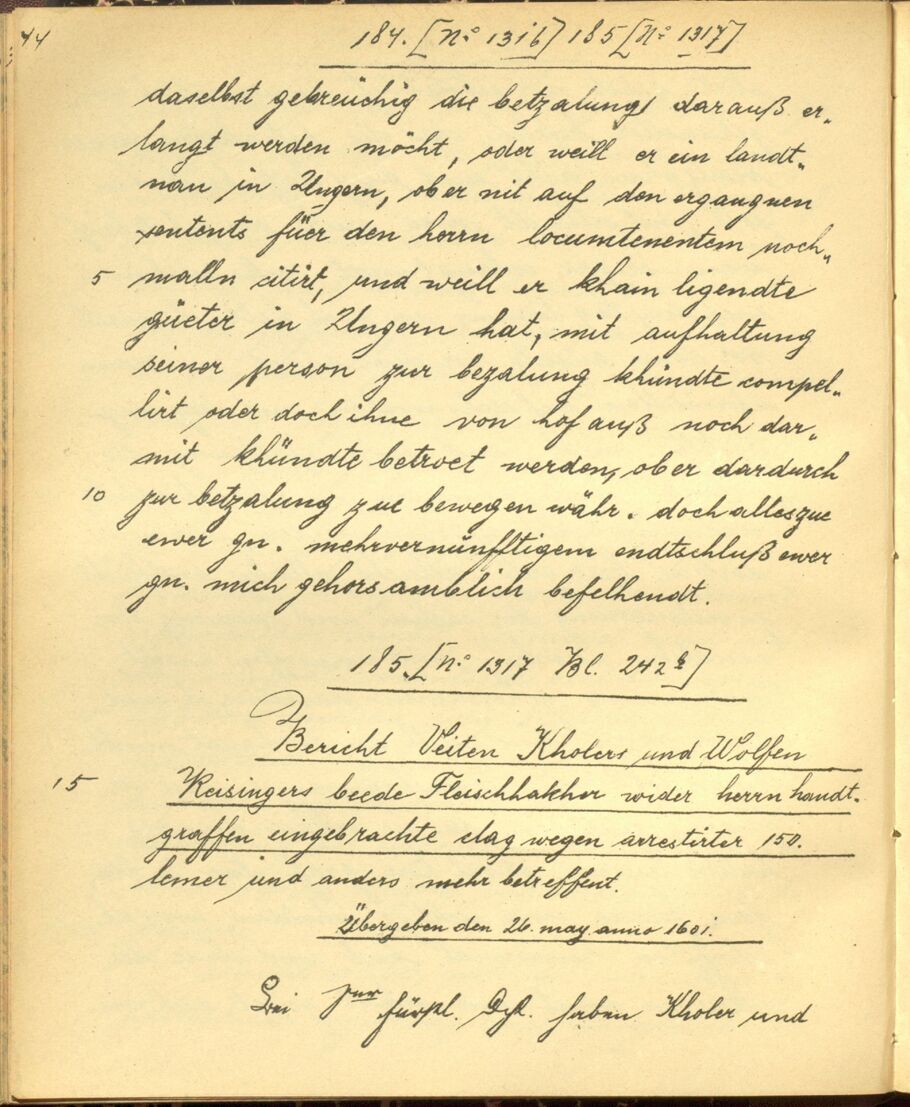 44
184. [N.o 1316] 185 [N.o 1317]
daselbst gebreüchig die betzalung darauß er-
langt werden möcht, oder weill er ein landt-
man in Ungern, ober nit auf den ergangnen
sentents füer den herrn locumtenentem noch-
5 malln citirt, und weill er khain ligendte
güeter in Ungern hat, mit aufhaltung
seiner person zur bezalung khündte compel-
lirt oder doch ihne von hof auß noch dar-
mit khündte betroet werden, ober dardurch
10 zur betzalung zue bewegen währ. doch alles zue
ewer gn. mehrvernünfftigem endtschluß ewer
gn. mich gehorsamblich befelhendt.
185. [N.o 1317 Bl. 242 b]
Bericht Veiten Kholers und Wolfen
15 Reisingers beede Fleischhakher wider herrn handt-
graffen eingebrachte clag wegen arrestirter 150.
lemer und anders mehr betreffent.
Übergeben den 26. may anno 1601.
Bei fürstl. Dhl. haben Kholer und